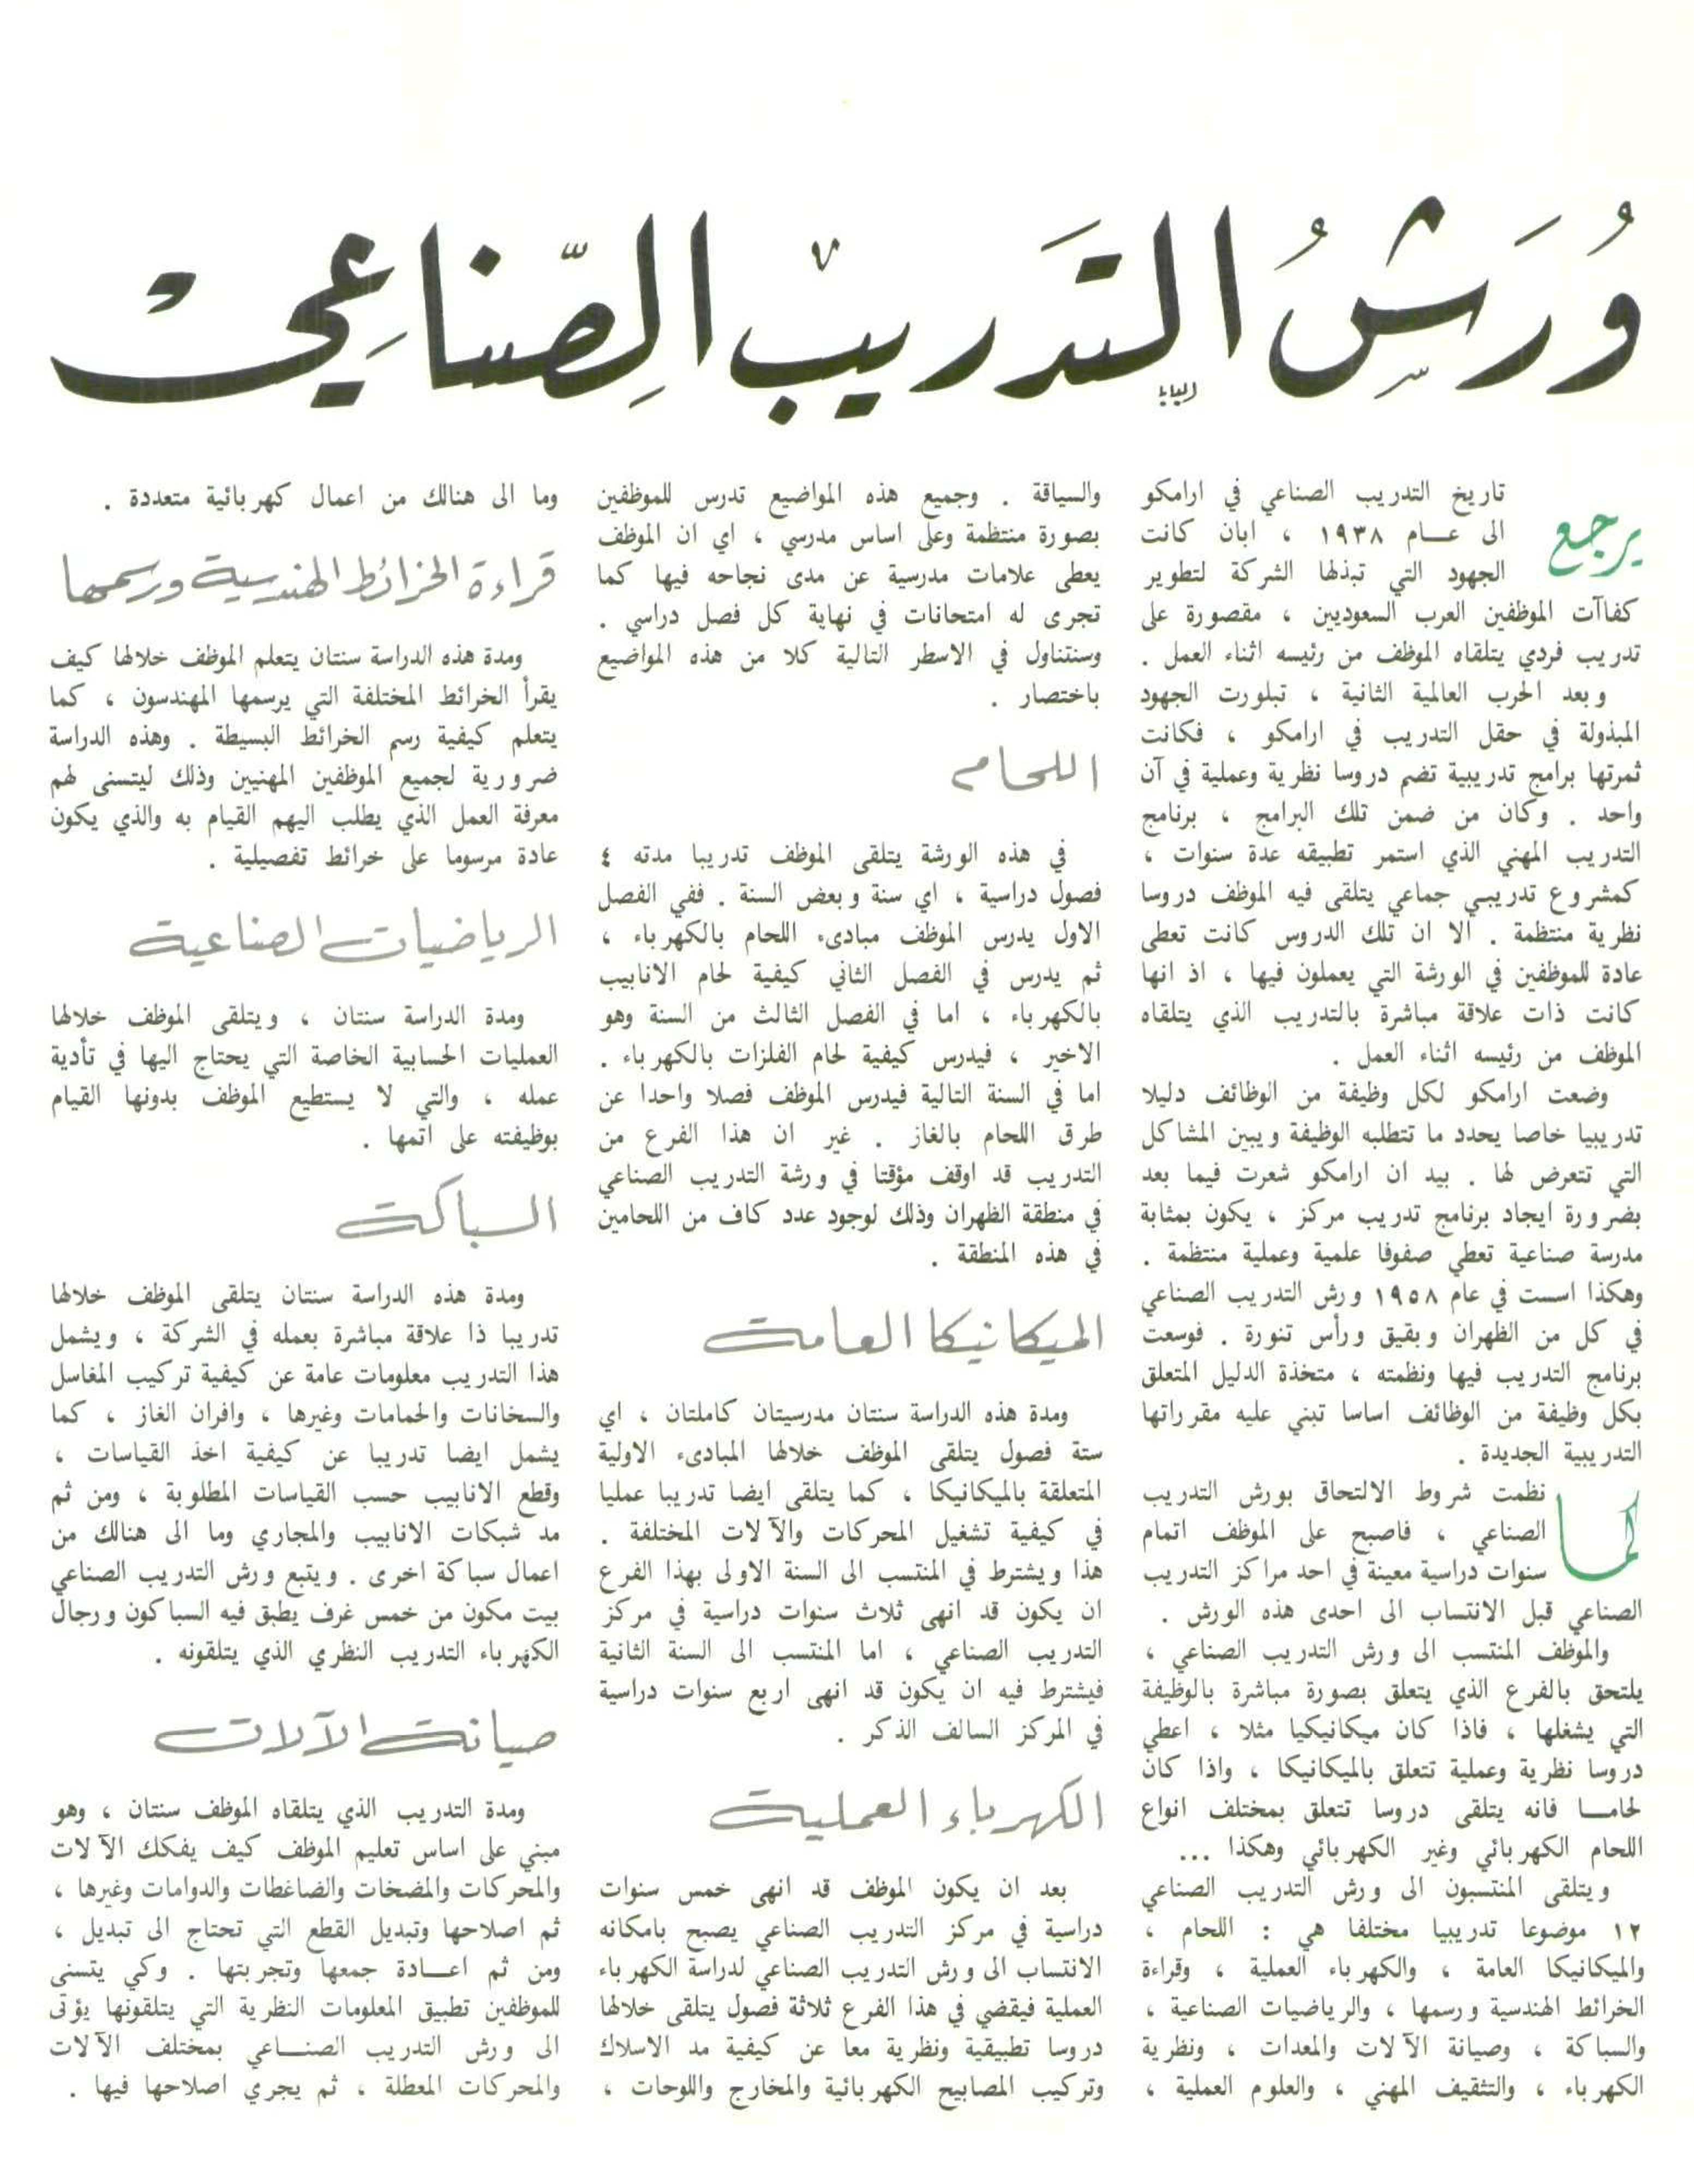 وُرَشُ التَدريب الصّناعِي
البابا
يرجع
تاريخ التدريب الصناعي في ارامكو
الى عـام ١٩٣٨ ، ابان كانت
الجهود التي تبذلها الشركة لتطوير
كفاآت الموظفين العرب السعوديين ، مقصورة على
تدريب فردي يتلقاه الموظف من رئيسه اثناء العمل .
وبعد الحرب العالمية الثانية ، تبلورت الجهود
المبذولة في حقل التدريب في ارامكو ، فكانت
ثمرتها برامج تدريبية تضم دروسا نظرية وعملية في آن
واحد . وكان من ضمن تلك البرامج ، برنامج
التدريب المهني الذي استمر تطبيقه عدة سنوات ،
كمشروع تدريبي جماعي يتلقى فيه الموظف دروسا
نظرية منتظمة . الا ان تلك الدروس كانت تعطى
عادة للموظفين في الورشة التي يعملون فيها ، اذ انها
كانت ذات علاقة مباشرة بالتدريب الذي يتلقاه
الموظف من رئيسه اثناء العمل .
وضعت ارامكو لكل وظيفة من الوظائف دليلا
تدريبيا خاصا يحدد ما تتطلبه الوظيفة ويبين المشاكل
التي تتعرض لها . بيد ان ارامكو شعرت فيما بعد
بضرورة ايجاد برنامج تدريب مركز ، يكون بمثابة
مدرسة صناعية تعطي صفوفا علمية وعملية منتظمة .
وهكذا اسست في عام ١٩٥٨ ورش التدريب الصناعي
في كل من الظهران وبقيق ورأس تنورة . فوسعت
برنامج التدريب فيها ونظمته ، متخذة الدليل المتعلق
بكل وظيفة من الوظائف اساسا تبني عليه مقرراتها
التدريبية الجديدة .
كما
نظمت شروط الالتحاق بورش التدريب
الصناعي ، فاصبح على الموظف اتمام
سنوات دراسية معينة في احد مراكز التدريب
الصناعي قبل الانتساب الى احدى هذه الورش .
والموظف المنتسب الى ورش التدريب الصناعي ،
يلتحق بالفرع الذي يتعلق بصورة مباشرة بالوظيفة
التي يشغلها ، فاذا كان ميكانيكيا مثلا ، اعطي
دروسا نظرية وعملية تتعلق بالميكانيكا ، واذا كان
لحامـا فانه يتلقى دروسا تتعلق بمختلف انواع
اللحام الكهربائي وغير الكهربائي وهكذا ...
ويتلقى المنتسبون الى ورش التدريب الصناعي
١٢ موضوعا تدريبيا مختلفا هي : اللحام ،
والميكانيكا العامة ، والكهرباء العملية ، وقراءة
الخرائط الهندسية ورسمها ، والرياضيات الصناعية ،
والسباكة ، وصيانة الآلات والمعدات ، ونظرية
الكهرباء ، والتثقيف المهني ، والعلوم العملية ،
والسياقة . وجميع هذه المواضيع تدرس للموظفين
بصورة منتظمة وعلى اساس مدرسي ، اي ان الموظف
يعطى علامات مدرسية عن مدى نجاحه فيها كما
تجرى له امتحانات في نهاية كل فصل دراسي .
وسنتناول في الاسطر التالية كلا من هذه المواضيع
باختصار .
اللحام
في هذه الورشة يتلقى الموظف تدريبا مدته ٤
فصول دراسية ، اي سنة وبعض السنة . ففي الفصل
الاول يدرس الموظف مبادىء اللحام بالكهرباء ،
ثم يدرس في الفصل الثاني كيفية لحام الانابيب
بالكهرباء ، اما في الفصل الثالث من السنة وهو
الاخير ، فيدرس كيفية لحام الفلزات بالكهرباء .
اما في السنة التالية فيدرس الموظف فصلا واحدا عن
طرق اللحام بالغاز . غير ان هذا الفرع من
التدريب قد اوقف مؤقتا في ورشة التدريب الصناعي
في منطقة الظهران وذلك لوجود عدد كاف من اللحامين
في هذه المنطقة .
الميكانيكا العامة
ومدة هذه الدراسة سنتان مدرسيتان كاملتان ، اي
ستة فصول يتلقى الموظف خلالها المبادىء الاولية
المتعلقة بالميكانيكا ، كما يتلقى ايضا تدريبا عمليا
في كيفية تشغيل المحركات والآلات المختلفة .
هذا ويشترط في المنتسب الى السنة الاولى بهذا الفرع
ان يكون قد انهى ثلاث سنوات دراسية في مركز
التدريب الصناعي ، اما المنتسب الى السنة الثانية
فيشترط فيه ان يكون قد انهى اربع سنوات دراسية
في المركز السالف الذكر .
الكهرباء العملية
بعد ان يكون الموظف قد انهى خمس سنوات
دراسية في مركز التدريب الصناعي يصبح بامكانه
الانتساب الى ورش التدريب الصناعي لدراسة الكهرباء
العملية فيقضي في هذا الفرع ثلاثة فصول يتلقى خلالها
دروسا تطبيقية ونظرية معا عن كيفية مد الاسلاك
وتركيب المصابيح الكهربائية والمخارج واللوحات ،
وما الى هنالك من اعمال كهربائية متعددة .
قراءة الخرائط الهندسية ورسمها
ومدة هذه الدراسة سنتان يتعلم الموظف خلالها كيف
يقرأ الخرائط المختلفة التي يرسمها المهندسون ، كما
يتعلم كيفية رسم الخرائط البسيطة . وهذه الدراسة
ضرورية لجميع الموظفين المهنيين وذلك ليتسنى لهم
معرفة العمل الذي يطلب اليهم القيام به والذي يكون
عادة مرسوما على خرائط تفصيلية .
الرياضيات الصناعية
ومدة الدراسة سنتان ، ويتلقى الموظف خلالها
العمليات الحسابية الخاصة التي يحتاج اليها في تأدية
عمله ، والتي لا يستطيع الموظف بدونها القيام
بوظيفته على اتمها .
السباكة
ومدة هذه الدراسة سنتان يتلقى الموظف خلالها
تدريبا ذا علاقة مباشرة بعمله في الشركة ، ويشمل
هذا التدريب معلومات عامة عن كيفية تركيب المغاسل
والسخانات والحمامات وغيرها ، وافران الغاز ، كما
يشمل ايضا تدريبا عن كيفية اخذ القياسات ،
وقطع الانابيب حسب القياسات المطلوبة ، ومن ثم
مد شبكات الانابيب والمجاري وما الى هنالك من
اعمال سباكة اخرى . ويتبع ورش التدريب الصناعي
بيت مكون من خمس غرف يطبق فيه السباكون ورجال
الكهرباء التدريب النظري الذي يتلقونه .
صيانة الآلات
ومدة التدريب الذي يتلقاه الموظف سنتان ، وهو
مبني على اساس تعليم الموظف كيف يفكك الآلات
والمحركات والمضخات والضاغطات والدوامات وغيرها ،
ثم اصلاحها وتبديل القطع التي تحتاج الى تبديل ،
ومن ثم اعـادة جمعها وتجربتها . وكي يتسنى
للموظفين تطبيق المعلومات النظرية التي يتلقونها يؤتى
الى ورش التدريب الصنـاعي بمختلف الآلات
والمحركات المعطلة ، ثم يجري اصلاحها فيها .